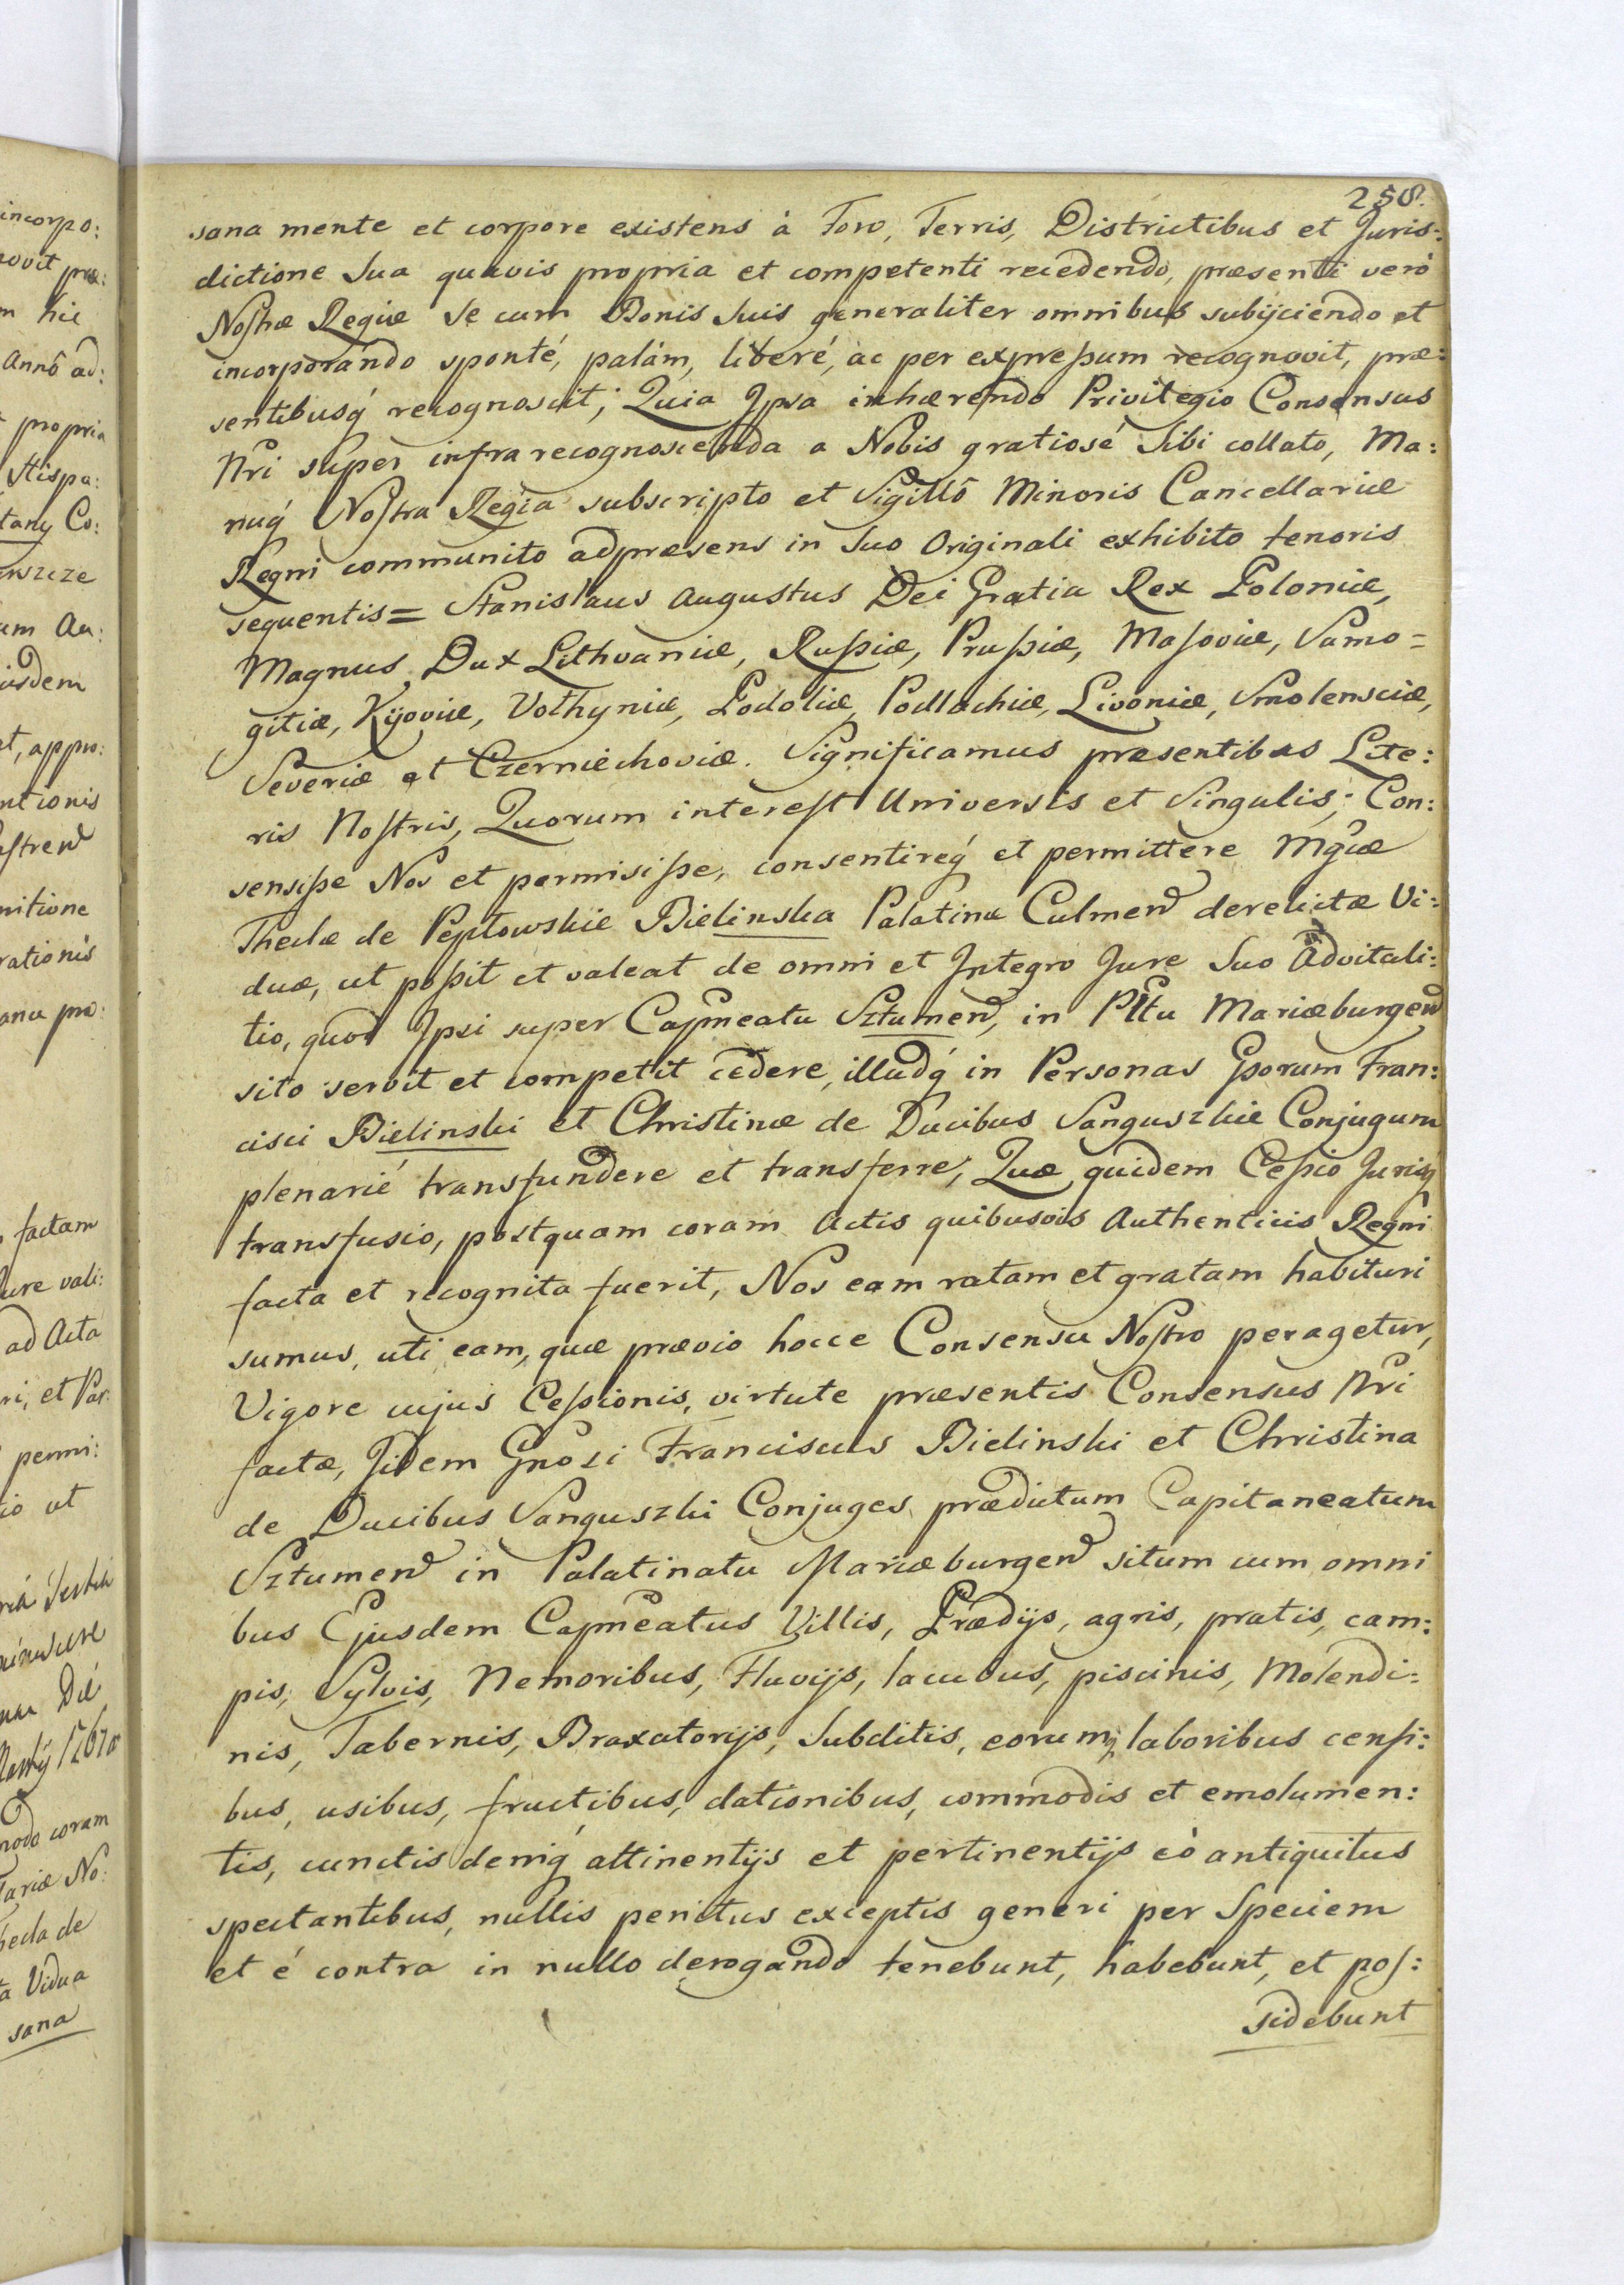 258.
sana mente et corpore existens à Foro, Terris, Districtibus et Juris:
dictione Sua quavis propria et competenti recedendo, præsenti verò
Nostræ Regiæ Se cum Bonis Suis generaliter omnibus subijciendo et
incorporando sponté, palám, liberé, ac per expreßum recognovit, præ:
sentibusq́ recognoscit; Quia Ipsa inhærendo Privilegio Consensus
Nr̃i super infrarecognoscenda a Nobis gratiosé Sibi collato, Ma:
nuq́ Nostra Regia subscripto et Sigillô Minoris Cancellariæ
Regni communito adpræsens in Suo Originali exhibito tenoris
sequentis = Stanislaus Augustus Dei Gratia Rex Poloniæ,
Magnus Dux Lithvaniæ, Rußiæ, Prußiæ, Masoviæ, Samo=
gitiæ, Kijoviæ, Volhyniæ, Podoliæ, Podlachiæ, Livoniæ, Smolensciæ,
Severiæ et Czerniechoviæ. Significamus præsentibus Lite:
ris Nostris, Quorum interest Universis et Singulis; Con:
sensiße Nos et permisiße, consentireq́ et permittere Mg̃cæ
Theclæ de Peptowskie Bielinska Palatinæ Culmen̄ derelictæ Vi:
duæ, ut poßit et valeat de omni et Integro Jure Suo Advitali:
tio, quod Ipsi super Capñeatu Sztumen̄, in Pltu Mariæburgen̄
sito servit et competit cedere, illudq́ in Personas Gsorum Fran:
cisci Bielinski et Christinæ de Ducibus Sanguszkie Conjugum
plenarié transfundere et transferre, Quæ quidem Ceßio Jurisq́
transfusio, postquam coram Actis quibusvis Authenticis Regni
facta et recognita fuerit, Nos eam ratam et gratam habituri
sumus, uti eam, quæ prævio hocce Consensu Nostro peragetur,
Vigore cujus Ceßionis, virtute præsentis Consensus Nr̃i
factæ, Jidem Gnosi Franciscus Bielinski et Christina
de Ducibus Sanguszki Conjuges prædictum Capitaneatum
Sztumen̄ in Palatinatu Mariæburgen̄ situm cum omni
bus Ejusdem Capñeatus Villis, Prædijs, agris, pratis, cam:
pis, Sylvis, Nemoribus, Fluvijs, lacubus, piscinis, Molendi:
nis, Tabernis, Braxatorijs, Subditis, eorumq́ laboribus censi:
bus, usibus, fructibus, dationibus, commodis et emolumen:
tis, cunctis deniq́ attinentijs et pertinentijs eò antiquitus
spectantibus, nullis penitus exceptis generi per Speciem
et é contra in nullo derogando tenebunt, habebunt, et pos:
sidebunt
incorpo:
hic
Annô ad:
propria
Hispa:
Co:
um Au:
ntionis
nitione
rationis
factam
Jure vali:
ad Acta
permi:
ut
coram
hecla de
Vidua
sana